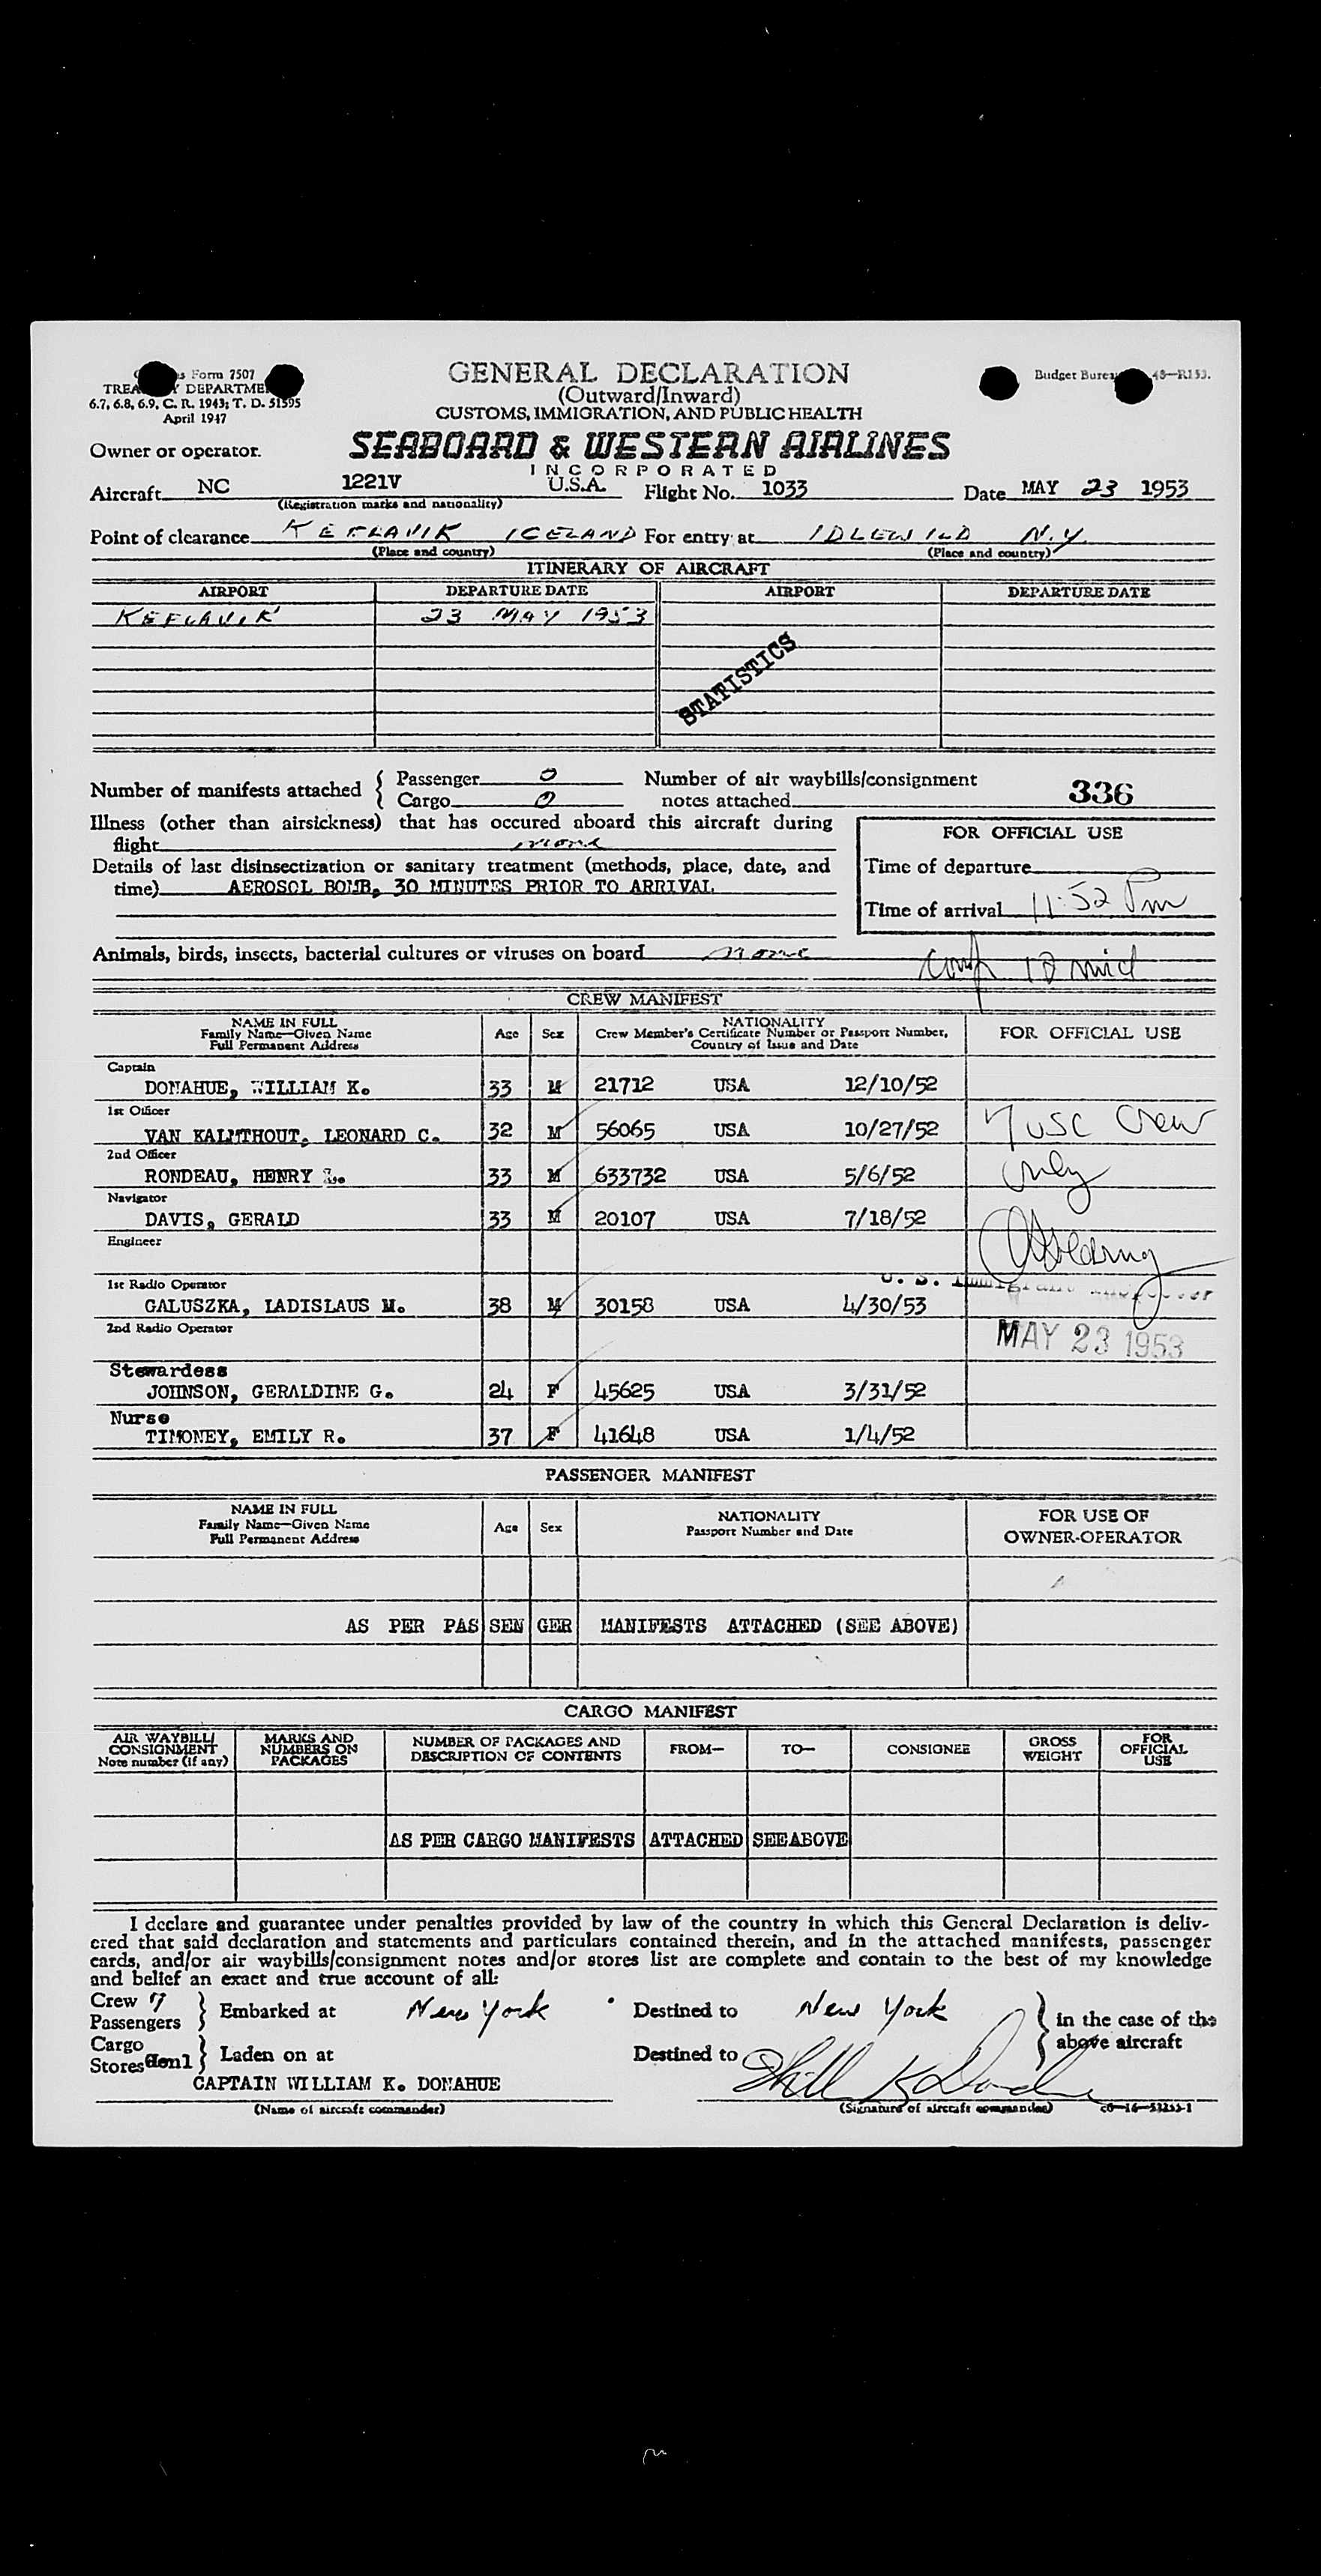 s Form 7507
TREA Y DEPARTME
6.7, 6.8, 6.9, C. R. 1943; T. D. 51595
April 1947
GENERAL DECLARATION
(Outward/Inward)
CUSTOMS, IMMIGRATION, AND PUBLIC HEALTH
Budget Burea 48—R153.
Owner or operator. SEABOARD & WESTERN AIRLINES
INCORPORATED
Aircraft NC 1221V U.S.A. Flight No. 1033 Date MAY 23 1953
(Registration marks and nationality)
Point of clearance KEFLAVIK ICELAND For entry at IDLEWILD N.Y
(Place and country) (Place and country)
ITINERARY OF AIRCRAFT
AIRPORT DEPARTURE DATE AIRPORT DEPARTURE DATE
KEFLAVIK 23 MAY 1953
STATISTICS
Number of manifests attached { Passenger 0 Number of air waybills/consignment
Cargo 0 notes attached 336
Illness (other than airsickness) that has occured aboard this aircraft during
flight none
Details of last disinsectization or sanitary treatment (methods, place, date, and
time) AEROSOL BOMB, 30 MINUTES PRIOR TO ARRIVAL
FOR OFFICIAL USE
Time of departure
Time of arrival 11:52 Pm
Animals, birds, insects, bacterial cultures or viruses on board none
12 mid
CREW MANIFEST
NAME IN FULL
Family Name—Given Name
Full Permanent Address
Age Sex
NATIONALITY
Crew Member's Certificate Number or Passport Number,
Country of Issue and Date
FOR OFFICIAL USE
Captain
DONAHUE, WILLIAM K. 33 M 21712 USA 12/10/52
1st Officer
VAN KALMTHOUT, LEONARD C. 32 M 56065 USA 10/27/52
7 USC Crew
2nd Officer
RONDEAU, HENRY L. 33 M 633732 USA 5/6/52
only
Navigator
DAVIS, GERALD 33 M 20107 USA 7/18/52
Engineer
1st Radio Operator
U. S. Immigrant Inspector
GALUSZKA, LADISLAUS M. 38 M 30158 USA 4/30/53
2nd Radio Operator
MAY 23 1953
Stewardess
JOHNSON, GERALDINE G. 24 F 45625 USA 3/31/52
Nurse
TIMONEY, EMILY R. 37 F 41648 USA 1/4/52
PASSENGER MANIFEST
NAME IN FULL
Family Name—Given Name
Full Permanent Address
Age Sex
NATIONALITY
Passport Number and Date
FOR USE OF
OWNER-OPERATOR
AS PER PAS SEN GER MANIFESTS ATTACHED (SEE ABOVE)
CARGO MANIFEST
AIR WAYBILL/
CONSIGNMENT
Note number (if any)
MARKS AND
NUMBERS ON
PACKAGES
NUMBER OF PACKAGES AND
DESCRIPTION OF CONTENTS
FROM— TO— CONSIGNEE
GROSS
WEIGHT
FOR
OFFICIAL
USE
AS PER CARGO MANIFESTS ATTACHED SEE ABOVE
I declare and guarantee under penalties provided by law of the country in which this General Declaration is deliv-
ered that said declaration and statements and particulars contained therein, and in the attached manifests, passenger
cards, and/or air waybills/consignment notes and/or stores list are complete and contain to the best of my knowledge
and belief an exact and true account of all:
Crew 7
Passengers } Embarked at New York Destined to New York } in the case of the
Cargo above aircraft
Stores Gen1 } Laden on at Destined to
CAPTAIN WILLIAM K. DONAHUE
(Name of aircraft commander) (Signature of aircraft commander)